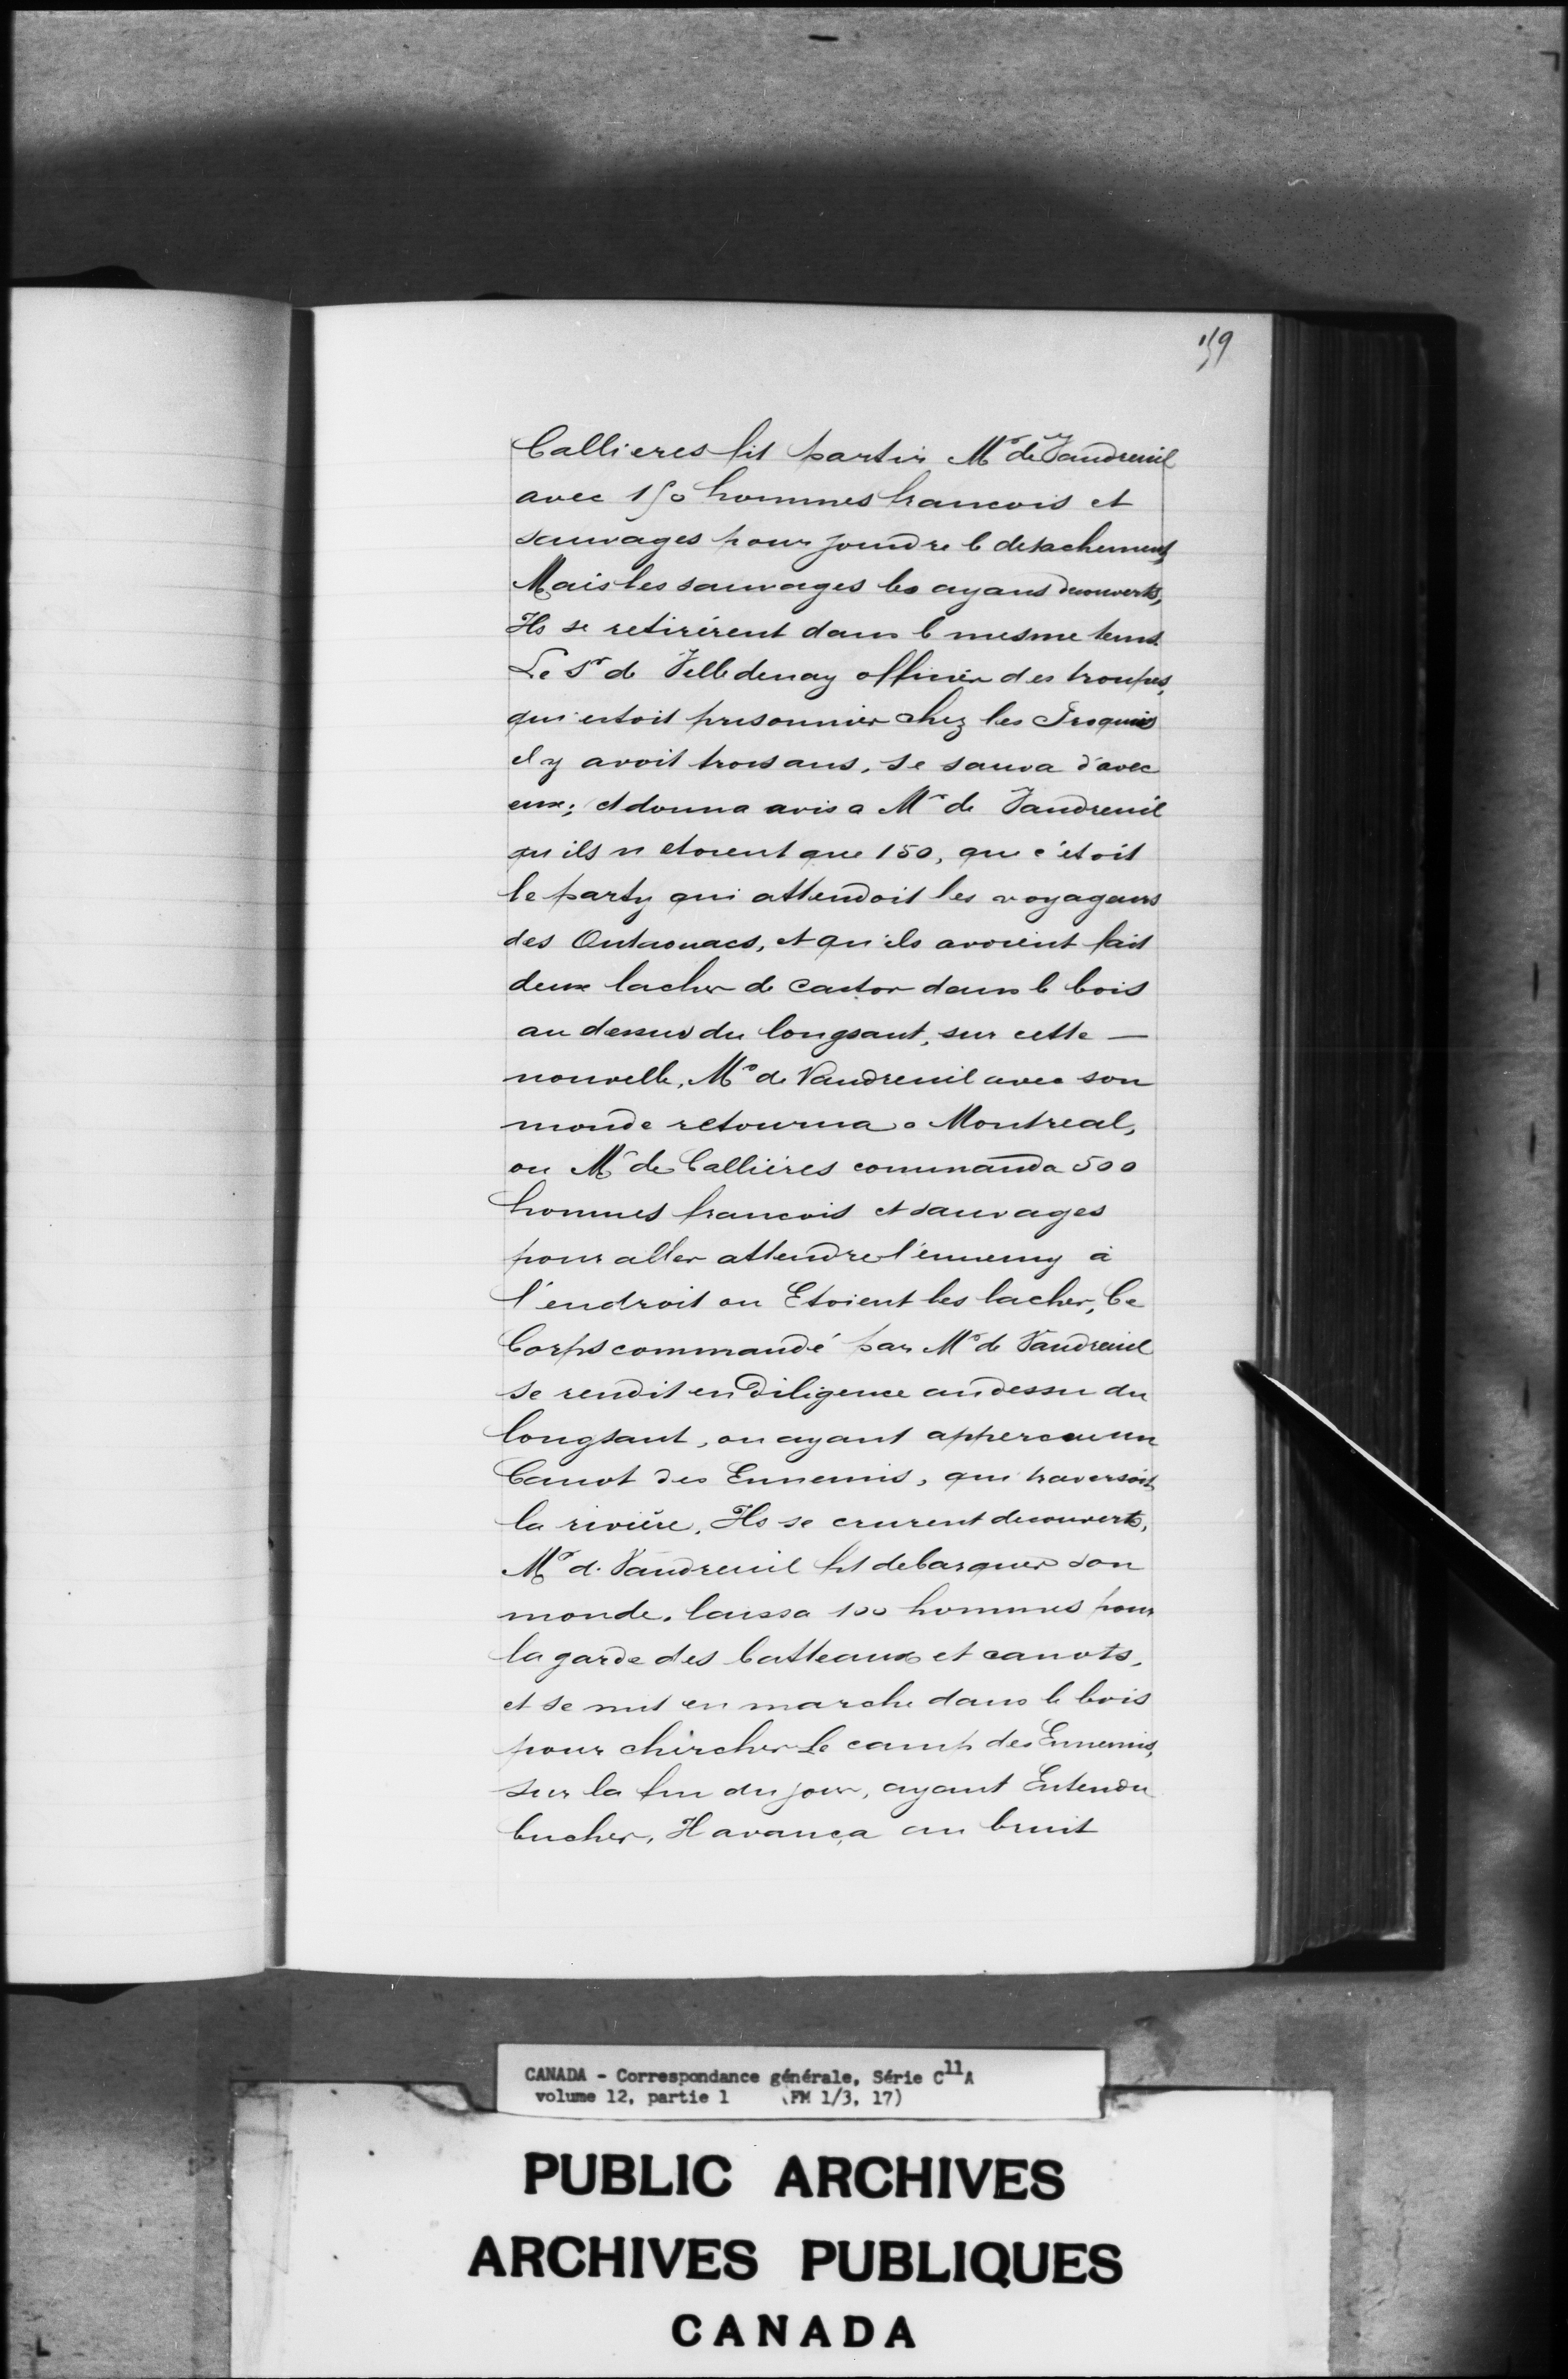 159
Callieres fit partir Mr de Vaudreuil
avec 150 hommes francois et
sauvages pour joindre le detachement,
Mais les sauvages les ayans decouverts,
Ils se retirérent dans le mesme tems.
Le Sr de Villedenay officier des troupes,
qui estoit prisonnier chez les Iroquois
il y avoit trois ans, se sauva d'avec
eux; et donna avis a Mr de Vaudreuil
qu'ils n'etoient que 150, que c'étoit
le party qui attendoit les voyageurs
des Outaouacs, et qu'ils avoient fait
deux caches de castor dans le bois
au dessus du longsaut, sur cette —
nouvelle, Mr de Vaudreuil avec son
monde retourna a Montreal,
ou Mr de Callières commanda 500
hommes francois et sauvages
pour aller attendre l'ennemy à
l'endroit ou Etoient les caches, Ce
Corps commandé par Mr de Vaudreuil
se rendit en Diligence au dessu du
longsaut, ou ayant apperceu un
Canot des Ennemis, qui traversoit
la rivière, Ils se crurent decouverts,
Mr de Vaudreuil fit debarquer son
monde, laissa 100 hommes pour
la garde des batteaux et canots,
et se mit en marche dans le bois
pour chercher Le camp des Ennemis,
sur la fin du jour, ayant Entendu
bucher, Il avança au bruit
CANADA - Correspondance générale, Série C11A
volume 12, partie 1 (FM 1/3, 17)
PUBLIC ARCHIVES
ARCHIVES PUBLIQUES
CANADA